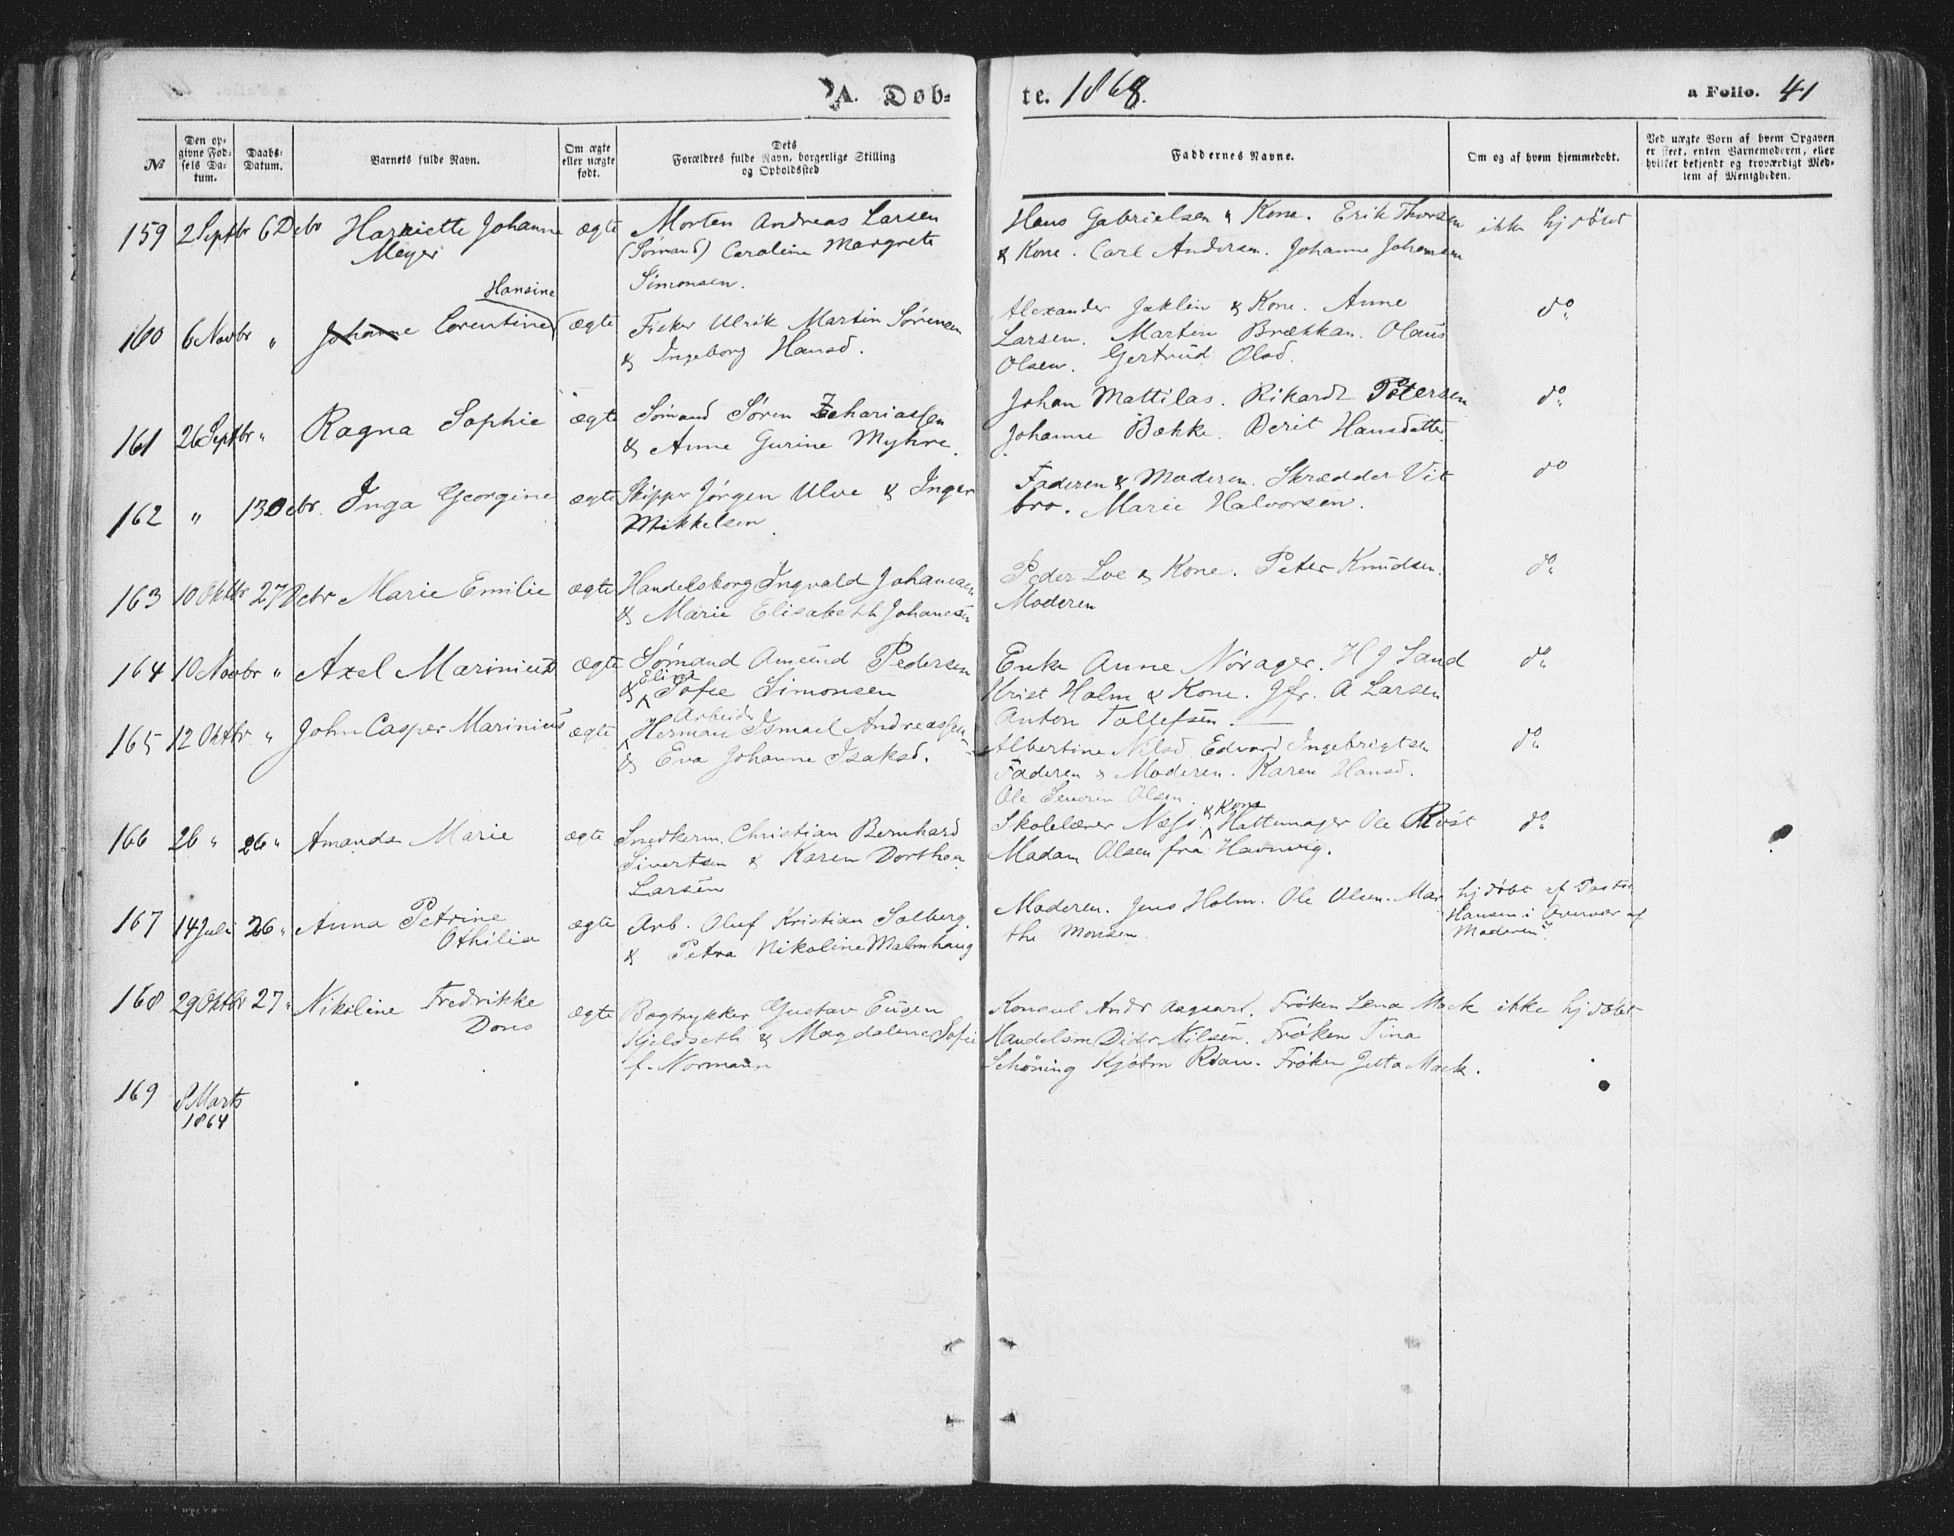 A. Døb-
te. 1868.
a Folio. 41
№
Den op-
givne Fød-
sels Da-
tum.
Daabs-
Datum.
Barnets fulde Navn.
Om ægte
eller uægte
født.
Dets
Forældres fulde Navn, borgerlige Stilling
og Opholdssted
Faddernes Navne.
Om og af hvem hjemmedøbt.
Ved uægte Børn af hvem Opgaven
er skeet, enten Barnemoderen, eller
hvilket bekjendt og troværdigt Med-
lem af Menigheden.
159 2 Septbr 6 Debr Harriette Johanne ægte Morten Andreas Larsen Hans Gabrielsen & Kone. Erik Thorsen ikke hj døbt
Meyer (Sømand) Caroline Margrete & Kone. Carl Andersen. Johanne Johansen
Simonsen.
Hansine
160 6 Novbr " Johanne Corentine ægte Fisker Ulrik Martin Sørensen Alexander Jaklin & Kone. Anne do
& Ingeborg Hansd. Larsen. Martin Brækkan. Olaus
Olsen. Gertrud Olsd.
161 26 Septbr " Ragna Sophie ægte Sømand Søren Zachariassen Johan Mattilas. Rikardt Petersen do
& Anne Gurine Myhre. Johanne Bække. Berit Hansdatter
162 " 13 Debr. Inga Georgine ægte Skipper Jørgen Ulve & Inger Faderen & Moderen. Skrædder Vit do
Mikkelsen. bro. Marie Halvorsen.
163 10 Oktbr 27 Debr Marie Emilie ægte Handelsborg Ingvald Johanesen Peder Loe & Kone. Peter Knudsen. do
& Marie Elisabeth Johanesen Moderen
164 10 Novbr " Axel Marinius ægte Sømand Amund Pedersen Enke Anne Nørager. H J Sand do
& Elisa Sofie Simonsen Krist Holm & Kone. Jfr. A Larsen
Anton Tollefsen.
165 12 Oktbr " John Casper Marinius ægte Arbeids Herman Ismael Andreassen Albertine Nilsd. Edvard Ingebrigtsen do
& Eva Johanne Isaksd. Faderen & Moderen. Karen Hansd.
Ole Severin Olsen.
166 26 " 26 " Amanda Marie ægte Snedkerm. Christian Bernhard Skolelærer Næss. & Kone Hattemager Ole Røst do
Sivertsen & Karen Dorthea Madam Olsen fra Havnvig.
Larsen
167 14 Juli 26 " Anna Petrine ægte Arb. Oluf Kristian Solberg. Moderen. Jens Holm. Ole Olsen. Mar hj døbt af Pastor
Othilia & Petra Nikoline Malmhaug the Monsen. Hansen i Overvær af
Moderen.
168 29 Oktbr 27 " Nikoline Fredrikke ægte Bogtrykker Gustav Eugen Konsul Andr Aagaard. Frøken Lena Mack ikke hj døbt
Dons Kjeldseth & Magdalene Sofie Handelsm Didr Nilsen. Frøken Tina
f. Normann Schøning Kjøbm Roan. Frøken Jetta Mack.
169 8 Marts
1864